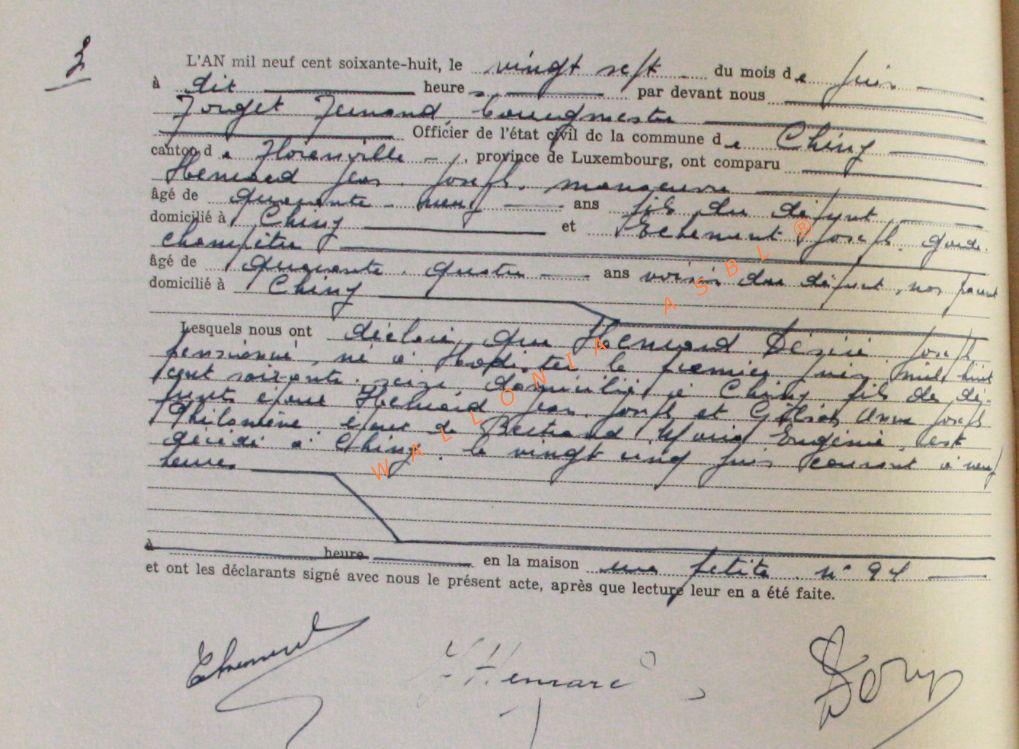 3
L'AN mil neuf cent soixante-huit, le vingt sept du mois de juin
à dix heure par devant nous
Fernand, bourgmestre
Officier de l'état civil de la commune de Chiny
canton de Florenville, province de Luxembourg, ont comparu
Hemard Jean Joseph, manoeuvre
âgé de quarante neuf ans fils du défunt
domicilié à Chiny et Joseph garde
champêtre
âgé de quarante quatre ans voisin du défunt, non parent
domicilié à Chiny
Lesquels nous ont déclaré que Hemard Désiré Joseph
pensionné, né à le premier juin mil huit
cent soixante seize domicilié à Chiny fils de dé-
funts époux Hemard Jean Joseph et Anne Joseph
Philomène, époux de Bertrand Maria Eugénie est
décédé à Chiny, le vingt cinq juin courant à neuf
heures
à heure en la maison rue petite n° 94
et ont les déclarants signé avec nous le présent acte, après que lecture leur en a été faite.
WALLONIA ASBL ®